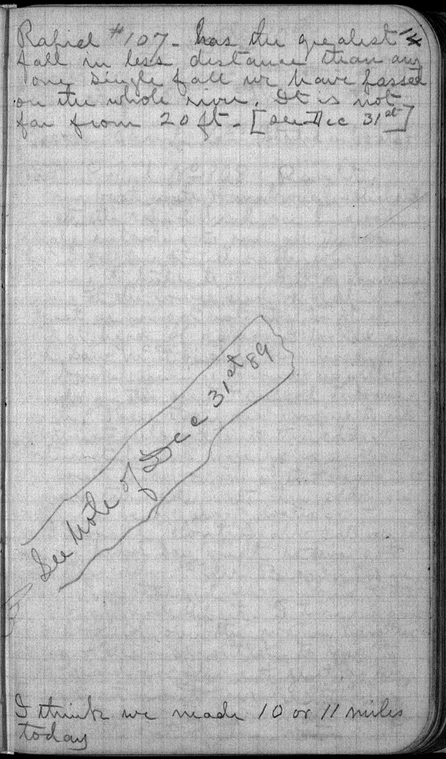 Rapid #107 - has the greatest
fall in less distance than any
one single fall we have passed
on the whole river. It is not
far from 20 ft - [see Dec 31st]
See Note of Dec 31st 89
I think we made 10 or 11 miles
today